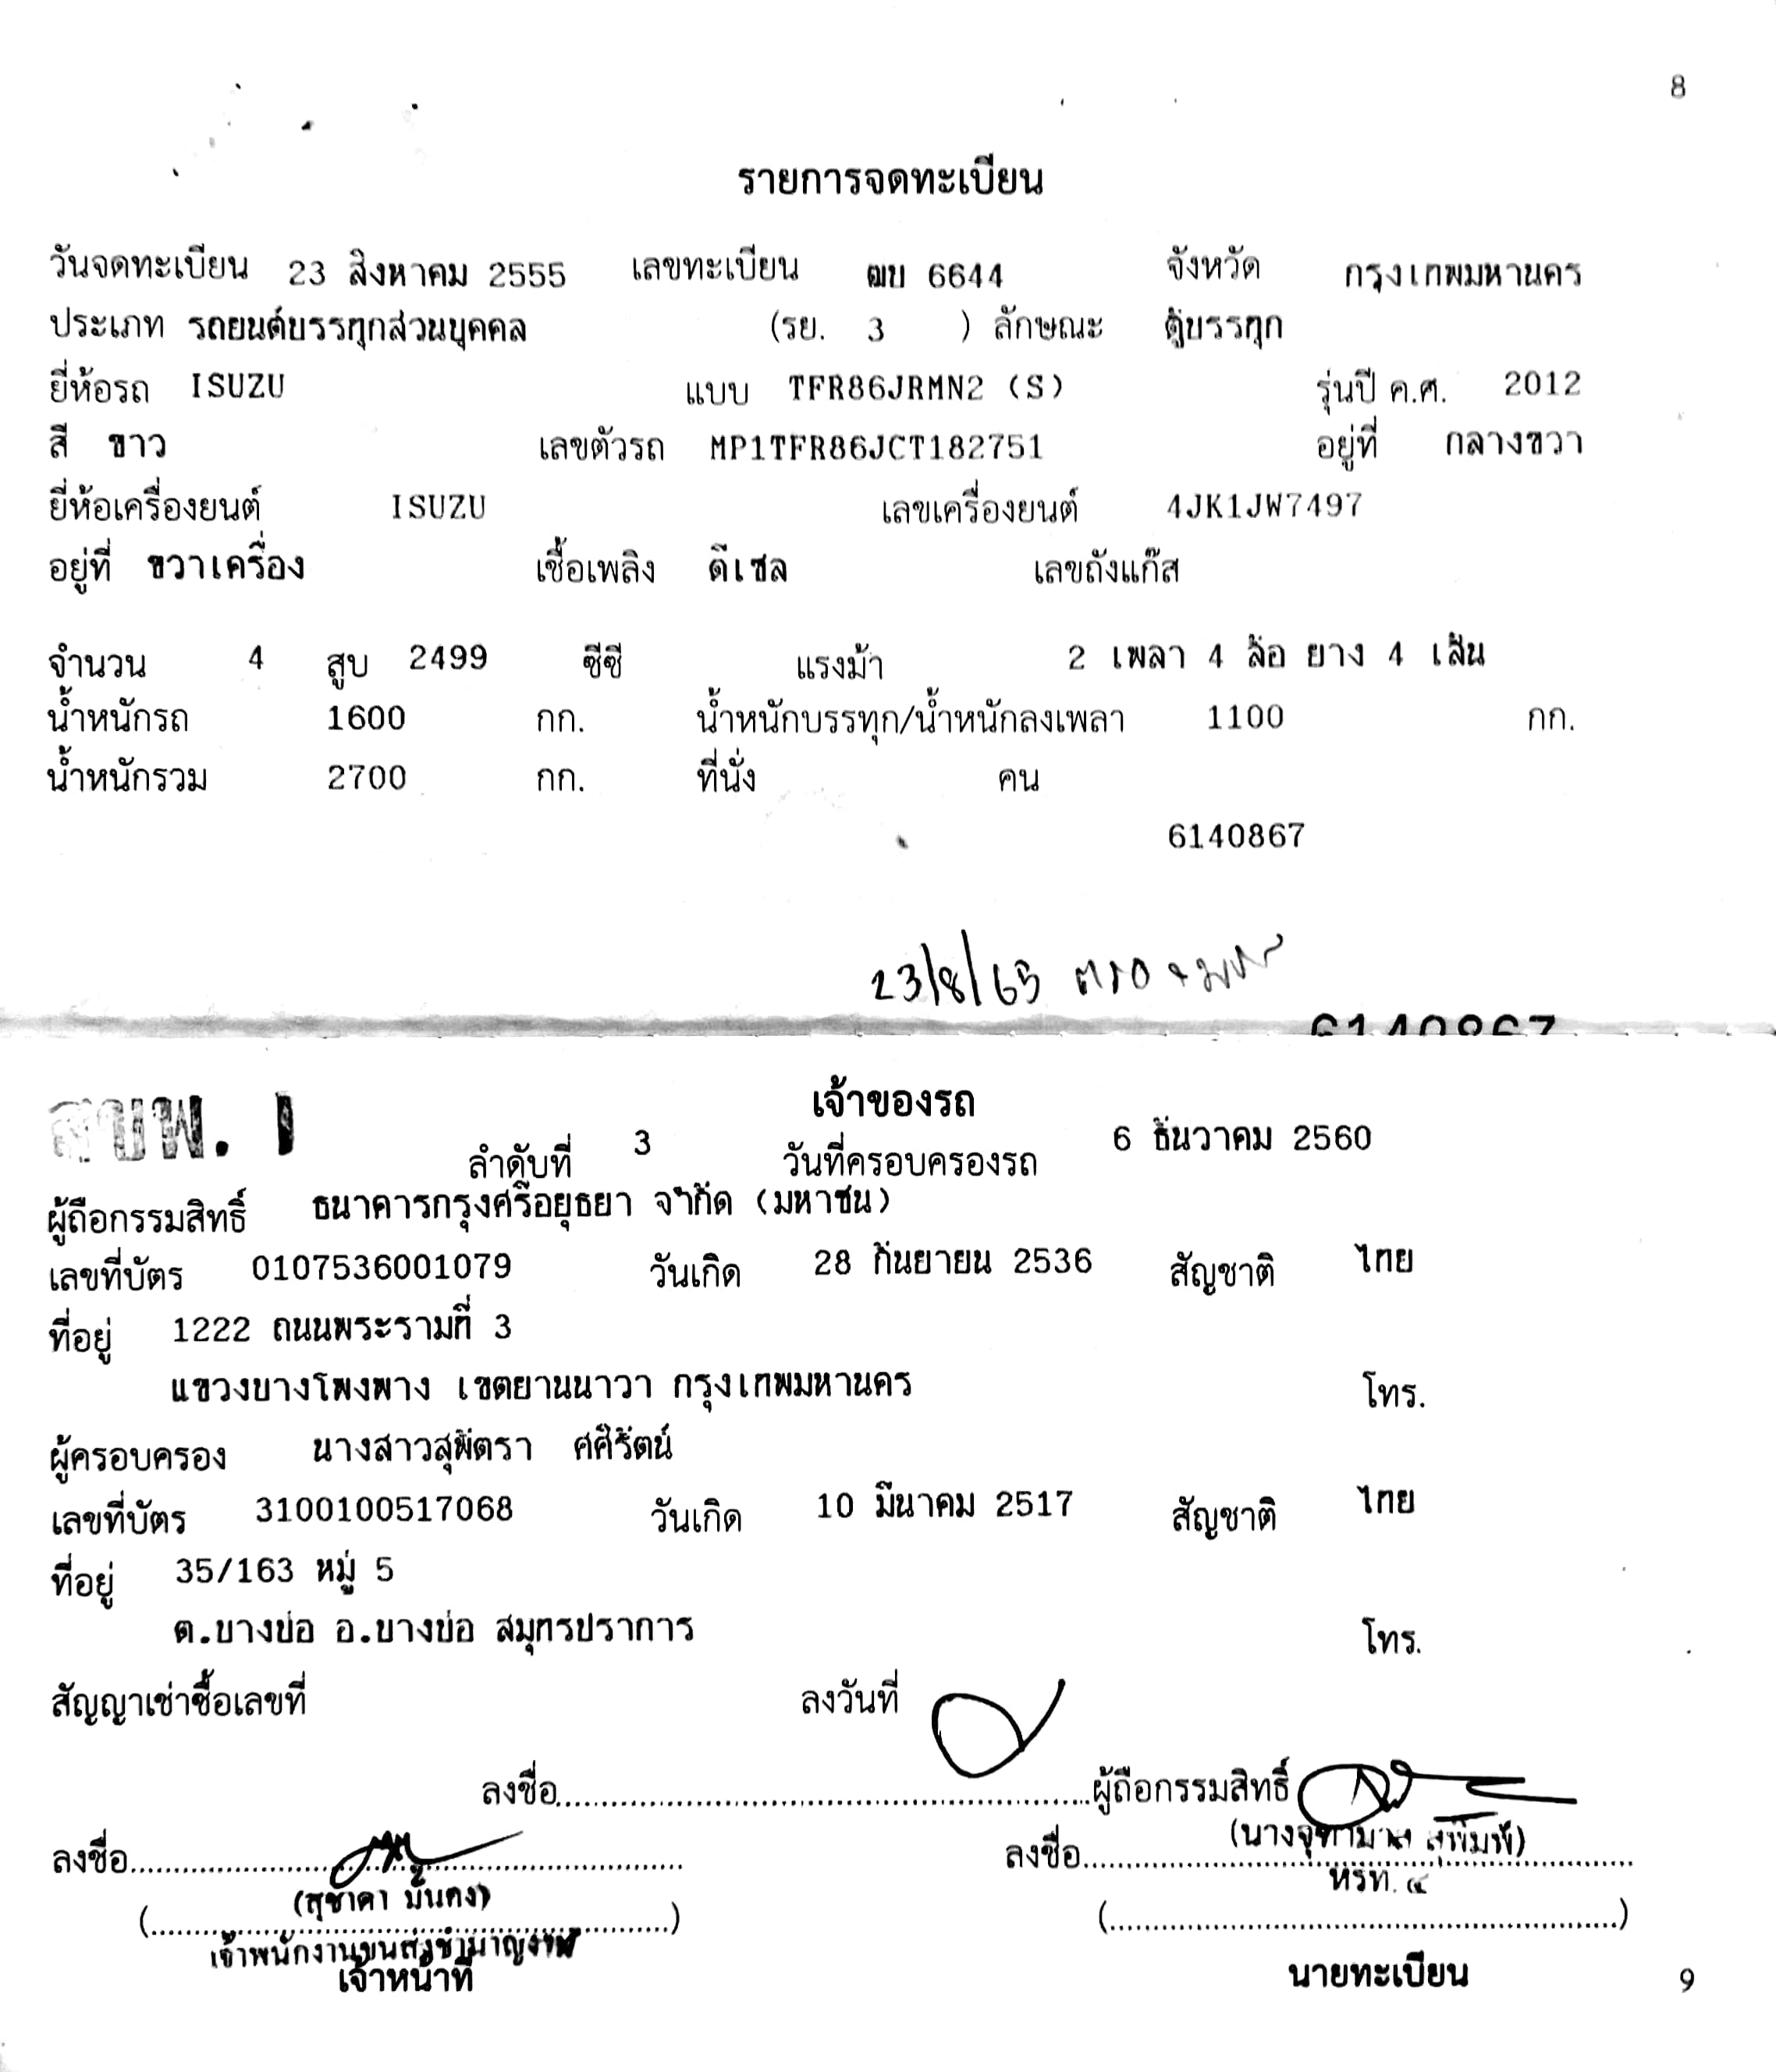 8
รายการจดทะเบียน
วันจดทะเบียน 23 สิงหาคม 2555 เลขทะเบียน ฒบ 6644 จังหวัด กรุงเทพมหานคร
ประเภท รถยนต์บรรทุกส่วนบุคคล (รย. 3 ) ลักษณะ ตู้บรรทุก
ยี่ห้อรถ ISUZU แบบ TFR86JRMN2 (S) รุ่นปี ค.ศ. 2012
สี ขาว เลขตัวรถ MP1TFR86JCT182751 อยู่ที่ กลางขวา
ยี่ห้อเครื่องยนต์ ISUZU เลขเครื่องยนต์ 4JK1JW7497
อยู่ที่ ขวาเครื่อง เชื้อเพลิง ดีเซล เลขถังแก๊ส
จำนวน 4 สูบ 2499 ซีซี แรงม้า 2 เพลา 4 ล้อ ยาง 4 เส้น
น้ำหนักรถ 1600 กก. น้ำหนักบรรทุก/น้ำหนักลงเพลา 1100 กก.
น้ำหนักรวม 2700 กก. ที่นั่ง คน
6140867
23/8/65
6140867
สขพ. 1
เจ้าของรถ
ลำดับที่ 3 วันที่ครอบครองรถ 6 ธันวาคม 2560
ผู้ถือกรรมสิทธิ์ ธนาคารกรุงศรีอยุธยา จำกัด (มหาชน)
เลขที่บัตร 0107536001079 วันเกิด 28 กันยายน 2536 สัญชาติ ไทย
ที่อยู่ 1222 ถนนพระรามที่ 3
แขวงบางโพงพาง เขตยานนาวา กรุงเทพมหานคร โทร.
ผู้ครอบครอง นางสาวสุพัตรา ศศิรัตน์
เลขที่บัตร 3100100517068 วันเกิด 10 มีนาคม 2517 สัญชาติ ไทย
ที่อยู่ 35/163 หมู่ 5
ต.บางบ่อ อ.บางบ่อ สมุทรปราการ โทร.
สัญญาเช่าซื้อเลขที่ ลงวันที่
ลงชื่อ............ผู้ถือกรรมสิทธิ์
ลงชื่อ............ ลงชื่อ............
(สุชาดา มั่นคง) (นางจุฑามาศ สุพิมพ์)
หรท. ๔
(............) (............)
เจ้าพนักงานขนส่งชำนาญงาน
เจ้าหน้าที่ นายทะเบียน
9